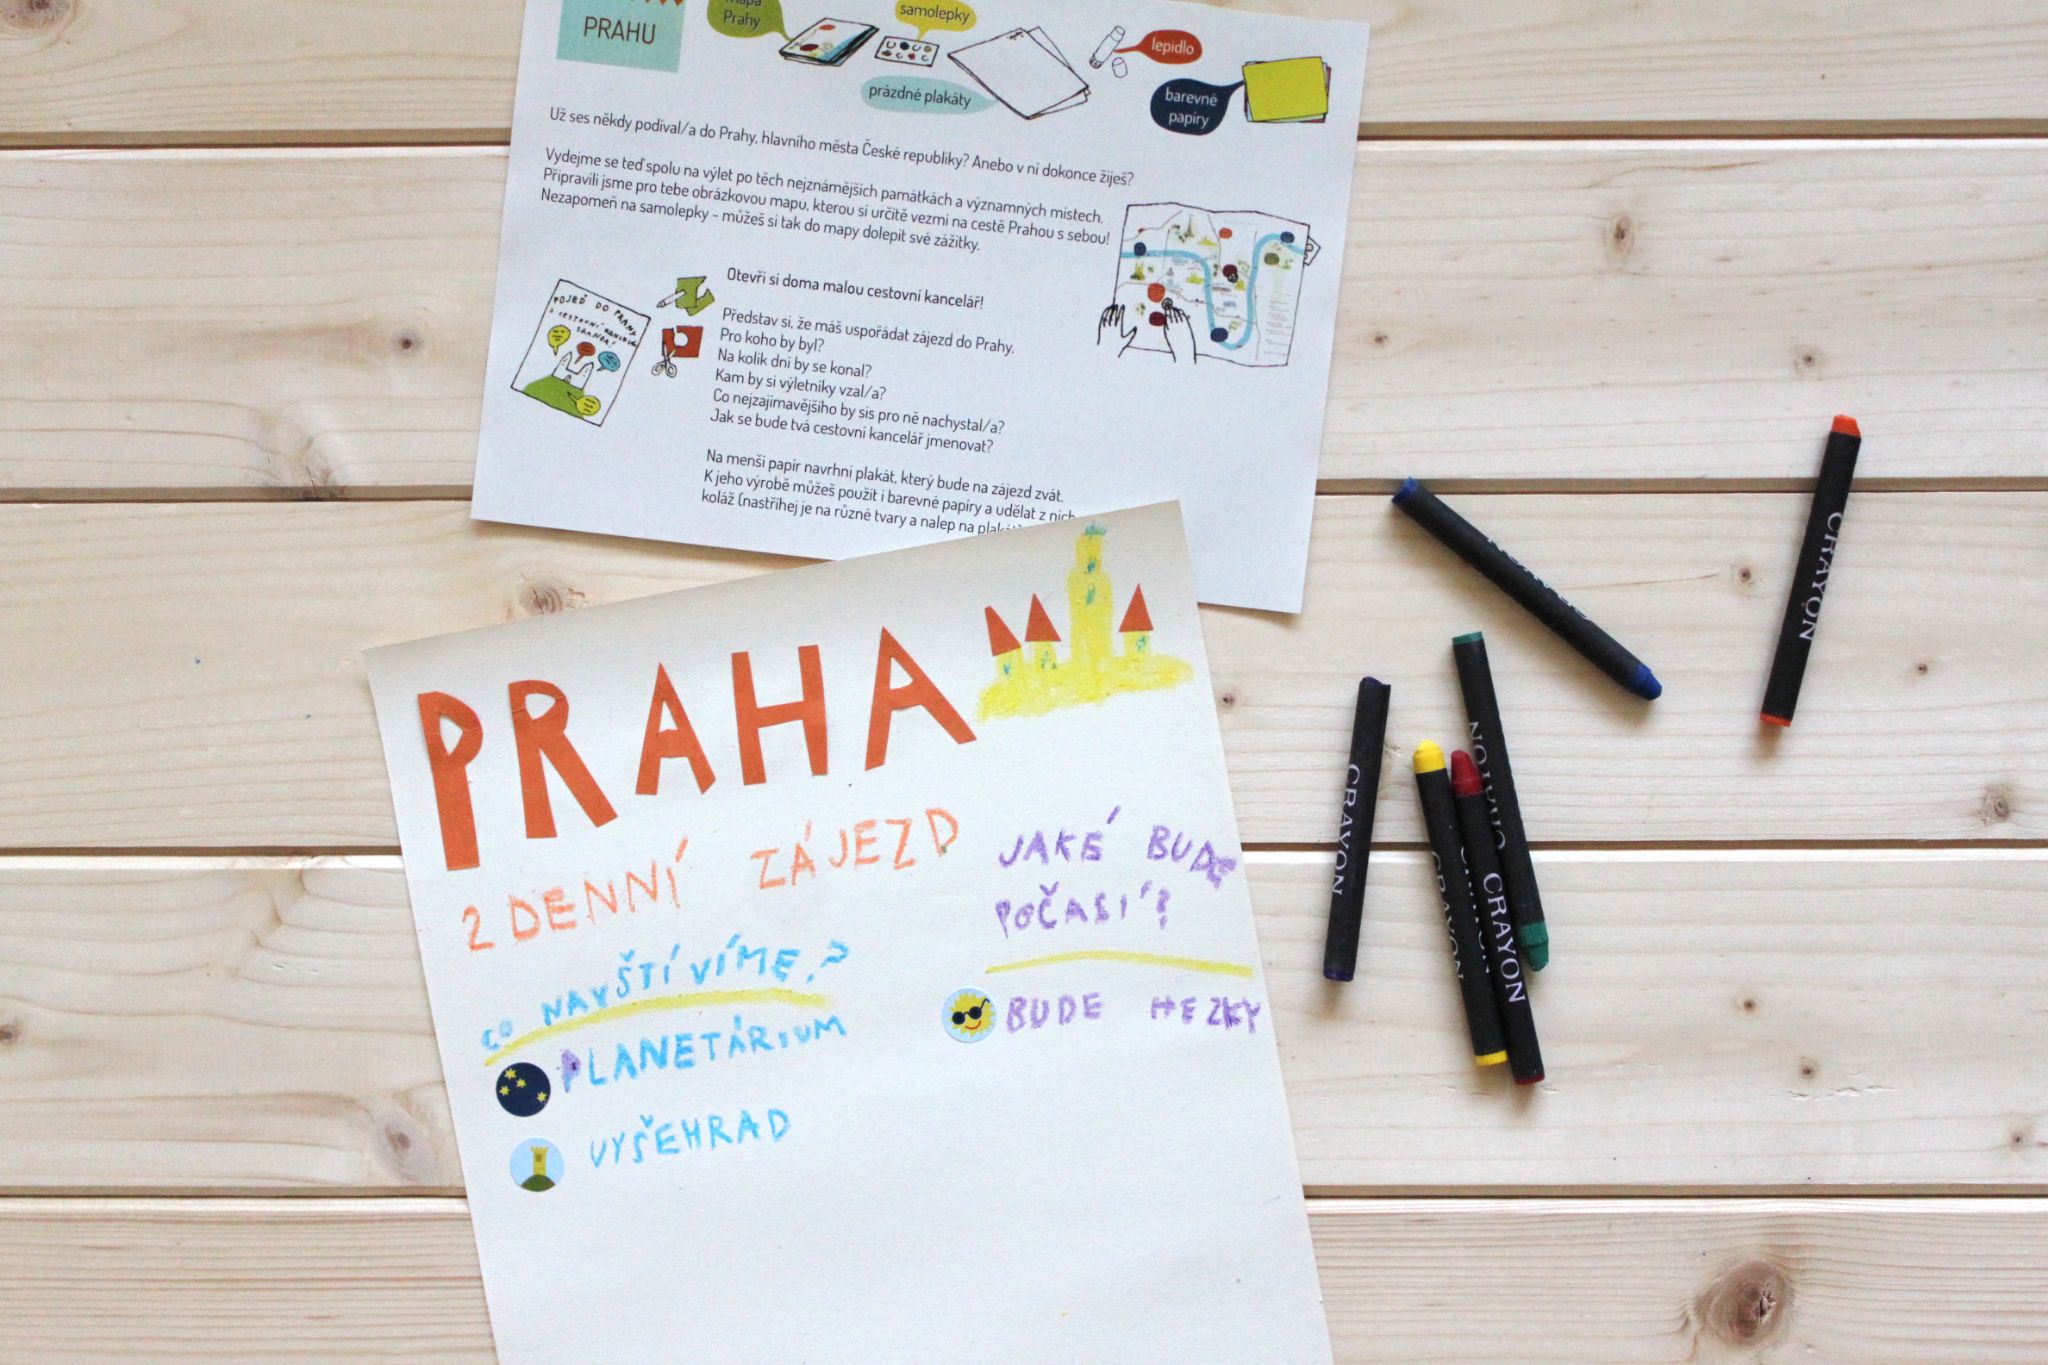 PRAHU
mapa
Prahy
samolepky
prázdné plakáty
lepidlo
barevné
papíry
Už ses někdy podíval/a do Prahy, hlavního města České republiky? Anebo v ní dokonce žiješ?
Vydejme se teď spolu na výlet po těch nejznámějších památkách a významných místech.
Připravili jsme pro tebe obrázkovou mapu, kterou si určitě vezmi na cestě Prahou s sebou!
Nezapomeň na samolepky - můžeš si tak do mapy dolepit své zážitky.
POJEĎ DO PRAHY
S CESTOVNÍ
Otevři si doma malou cestovní kancelář!
Představ si, že máš uspořádat zájezd do Prahy.
Pro koho by byl?
Na kolik dní by se konal?
Kam by si výletníky vzal/a?
Co nejzajímavějšího by sis pro ně nachystal/a?
Jak se bude tvá cestovní kancelář jmenovat?
Na menší papír navrhni plakát, který bude na zájezd zvát.
K jeho výrobě můžeš použít i barevné papíry a udělat z nich
koláž (nastříhej je na různé tvary a nalep na plakát)
PRAHA
2 DENNÍ ZÁJEZD
CO NAVŠTÍVÍME?
PLANETÁRIUM
VYŠEHRAD
JAKÉ BUDE
POČASÍ?
BUDE HEZKY
CRAYON
CRAYON
CRAYON
CRAYON
CRAYON
CRAYON